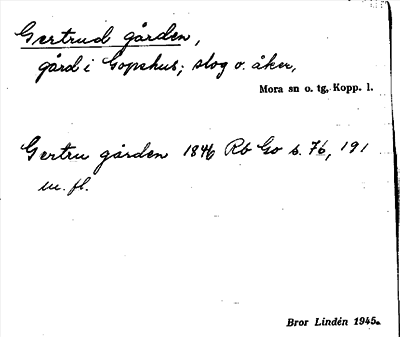 Gertrud gården,
gård i Gopshus; slog o. åker,
Mora sn o. tg, Kopp. l.
Gertru gården 1846 Rb Go s. 76, 191
m. fl.
Bror Lindén 1945.